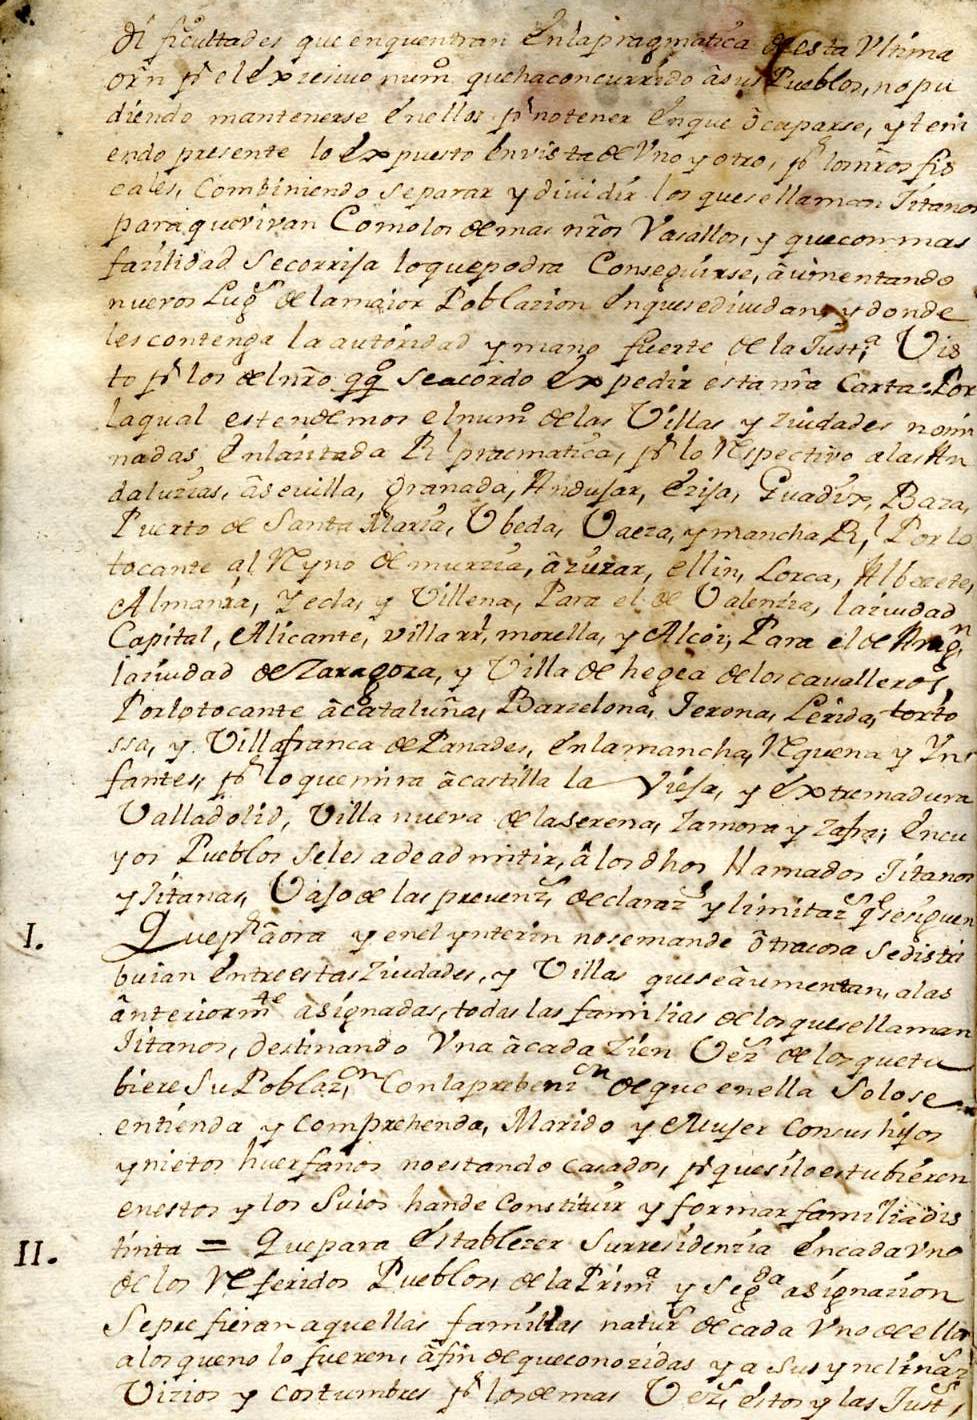 dificultades que enquentran en la pragmatica de esta Vltima
orn pr el expresiuo numo que ha concurrido â sus Pueblos, no pu
diendo mantenerse en ellos, pr no tener en que ôcuparse, y teni
endo presente lo expuesto en vista de Vno y otro, pr los nros fis
cales, Combiniendo separar y diuidir los que se llaman Jitanos
para que vivan Como los demas nros Vasallos, y que con mas
fazilidad se corrija lo que podra Conseguirse, âumentando
nuevos Lugs de la maior Poblazion en que se diuidan, y donde
les contenga la autoridad y mano fuerte de la Justa, Vis
to pr los del nro qq̃o se acordo expedir esta nra Carta: Por
la qual estendemos el numo de las Villas y ziudades nomi
nadas en la zitada Rl pracmatica, pr lo Respectivo a las An
daluzias, â Sevilla, Granada, Andujar, Ezija, Guadix, Baza,
Puerto de Santa Maria, Vbeda, Vaeza, y mancha Rl, Por lo
tocante al Reyno de murzia, â ellin, Lorca, Albacete,
Almanza, Yecla, y Villena, Para el de Valenzia, la ziudad
Capital, Alicante, villa rrl, morella, y Alcoi; Para el de Aragn
la ziudad de Zaragoza, y Villa de hegea de los cavalleros,
Por lo tocante â cataluña, Barzelona, Jerona, Lerida, torto
ssa, y Villafranca de Panades, en la mancha, Requena y Yn
fantes, pr lo que mira â castilla la Vieja, y extremadura
Valladolid, Villa nueva de la serena, Zamora y Zafra; en cu
yos Pueblos se les a de admitir, â los dhos llamados Jitanos
y Jitanas, Vajo de las prevenzs declarazs y limitazs qe se siguen
I. Que pr âora y en el ynterin no se mande ôtra cosa se distri
buian entre estas Ziudades, y Villas que se âumentan, a las
ânteriormte asignadas, todas las familias de los que se llaman
Jitanos, destinando Vna â cada Zien Vezs de los que tu
biere Su Poblazon, Con la prebenzn de que en ella Solo se
entienda y comprehenda, Marido y Mujer Con sus hijos
y nietos huerfanos no estando casados, pr que si lo estubieren
en estos y los Suios han de Constituir y formar familia dis
II. tinta = Que para Establezer Su rresidenzia en cada vno
de los Referidos Pueblos, de la Prima y Segda asignazion
Se prefieran aquellas familias naturs de cada Vno de ellos
a los que no lo fueren, âfin de que conozidas ya sus ynclinazs
Vizios y costumbres pr los demas Vezs, estos y las Justs,